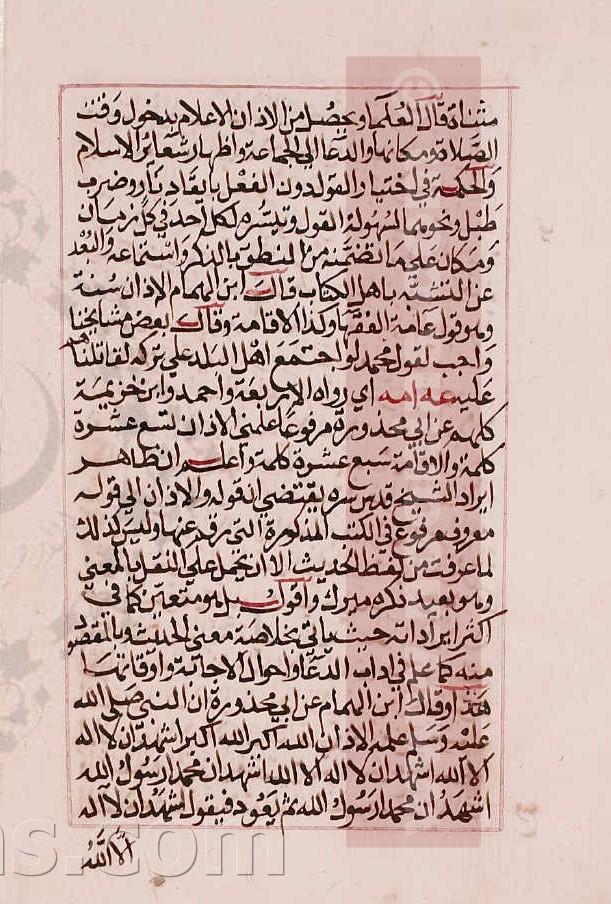 مثناة قال العلماء ويحصل من الاذان الاعلام بدخول وقت
الصلاة ومكانها والدعا الى الجماعة واظهار شعائر الاسلام
والحكمة في اختيار القول دون الفعل بايقاد نار وضرب
طبل ونحوهما لسهولة القول وتيسره لكل احد في كل زمان
ومكان على ما تضمنه من النطق بالذكر واستماعه والبعد
عن التشبه باهل الكتاب قال ابن الهمام الاذان سنة
وهو قول عامة الفقها وكذا الاقامة وقال بعض مشايخنا
واجب لقول محمد لو اجتمع اهل البلد على تركه لقاتلناهم
عليه عه امه اي رواه الاربعة واحمد وابن خزيمة
كلهم عن ابي محذورة مرفوعا علمني الاذان تسع عشرة
كلمة والاقامة سبع عشرة كلمة واعلم ان ظاهر
ايراد الشيخ قدس سره يقتضي ان قوله والاذان الى قوله
معروف مرفوع في الكتب المذكورة التي رقم عنها وليس كذلك
لما عرفت من لفظ الحديث الا ان يحمل على النقل بالمعنى
وهو بعيد ذكره ميرك واقول بل هو متعين كما في
اكثر ايراداته حيث ياتي بخلاصة معنى الحديث وبالمقصود
منه كما علم في اداب الدعا واحوال الاجابة واوقاتها
هذا وقال ابن الهمام عن ابي محذورة ان النبي صلى الله
عليه وسلم علمه الاذان الله اكبر الله اكبر اشهد ان لا اله
الا الله اشهد ان لا اله الا الله اشهد ان محمدا رسول الله
اشهد ان محمدا رسول الله ثم يعود فيقول اشهد ان لا اله
الا الله
ns.com